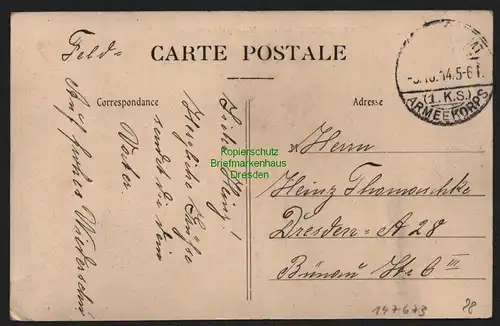 Feld=
CARTE POSTALE
Correspondance
Adresse
.10.14.5-6
(1.K.S.)
ARMEEKORPS
Lieber Heinz!
Herzliche Grüße
sendet dir dein
Vater.
Auf frohes Wiedersehn!
Herrn
Heinz Thomaschke
Dresden-A 28
Bünau Str 6 III
Kopierschutz
Briefmarkenhaus
Dresden
147679
28